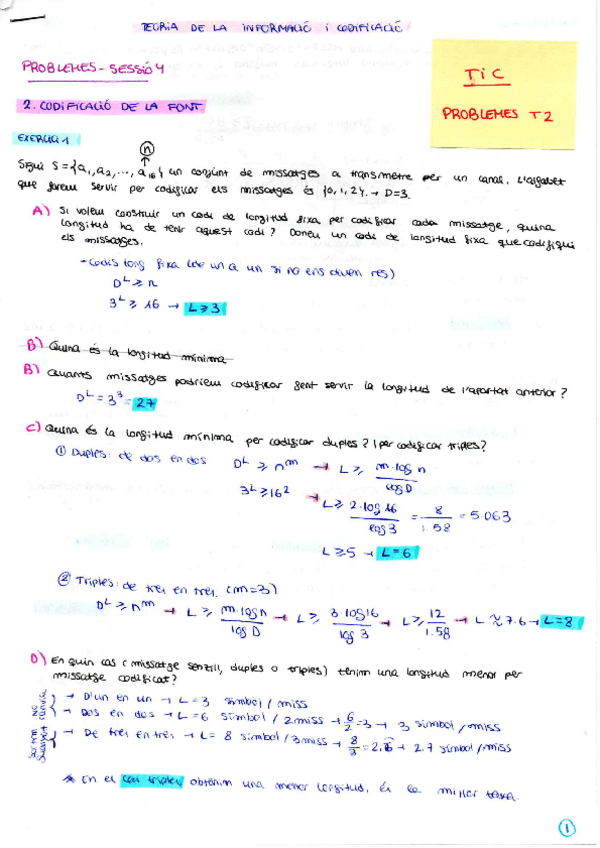 TEORIA DE LA INFORMACIÓ i CODIFICACIÓ
PROBLEMES - SESSIÓ 4
TiC
PROBLEMES T2
2. CODIFICACIÓ DE LA FONT
EXERCICI 1
n
Sigui S = {a₁, a₂, ..., a₁₆} un conjunt de missatges a transmetre per un canal. L'alfabet
que farem servir per codificar els missatges és {0,1,2}. → D=3.
A) Si volem construir un codi de longitud fixa per codificar cada missatge, quina
longitud ha de tenir aquest codi? Doneu un codi de longitud fixa que codifiqui
els missatges.
- Codis long fixa (de un a un si no ens diuen res)
D^L ≥ n
3^L ≥ 16 → L ≥ 3
B) Quina és la longitud mínima
B) Quants missatges podríem codificar fent servir la longitud de l'apartat anterior?
D^L = 3³ = 27
C) Quina és la longitud mínima per codificar duples? I per codificar triples?
① Duples: de dos en dos D^L ≥ n^m → L ≥ m·log n / log D
3^L ≥ 16² → L ≥ 2·log 16 / log 3 = 8 / 1.58 = 5.063
L ≥ 5 → L = 6
② Triples: de tres en tres. (m=3)
D^L ≥ n^m → L ≥ m log n / log D → L ≥ 3·log 16 / log 3 → L ≥ 12 / 1.58 → L ≈ 7.6 → L = 8
D) En quin cas (missatge senzill, duples o triples) tenim una longitud menor per
missatge codificat?
→ D'un en un → L = 3 símbol / miss
→ Dos en dos → L = 6 símbol / 2 miss → 6/2 = 3 → 3 símbol / miss
→ De tres en tres → L = 8 símbol / 3 miss → 8/3 = 2,6 → 2.7 símbol / miss
* En el cas triples obtenim una menor longitud, és la millor taxa.
1